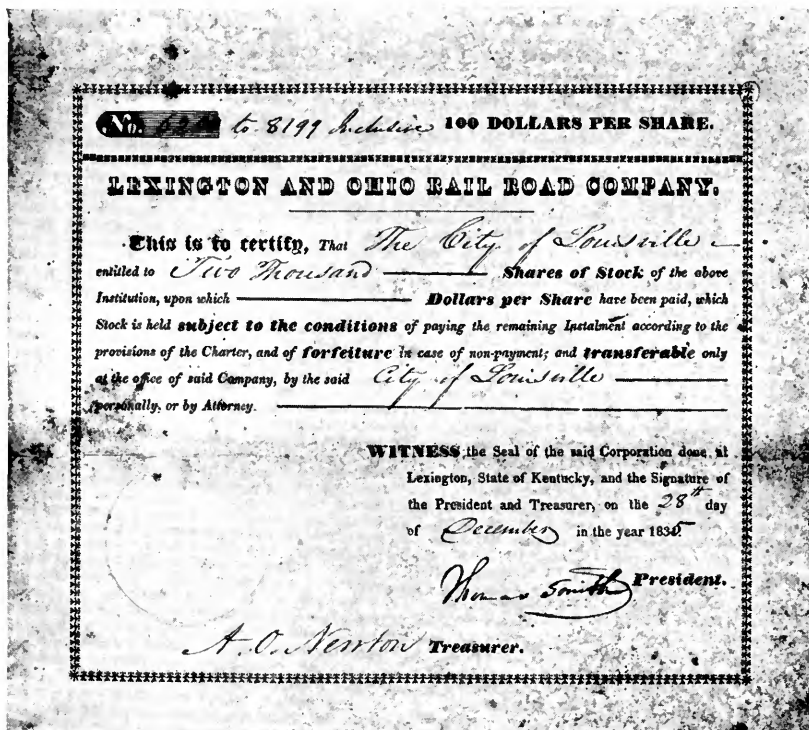 No. to 8199 Inclusive 100 DOLLARS PER SHARE.
LEXINGTON AND OHIO RAIL ROAD COMPANY.
This is to certify, That The City of Louisville
entitled to Two Thousand Shares of Stock of the above
Institution, upon which Dollars per Share have been paid, which
Stock is held subject to the conditions of paying the remaining Instalment according to the
provisions of the Charter, and of forfeiture in case of non-payment; and transferable only
at the office of said Company, by the said City of Louisville
personally, or by Attorney.
WITNESS the Seal of the said Corporation done at
Lexington, State of Kentucky, and the Signature of
the President and Treasurer, on the 28th day
of December in the year 1835.
Thomas Smith President.
A. O. Newton Treasurer.